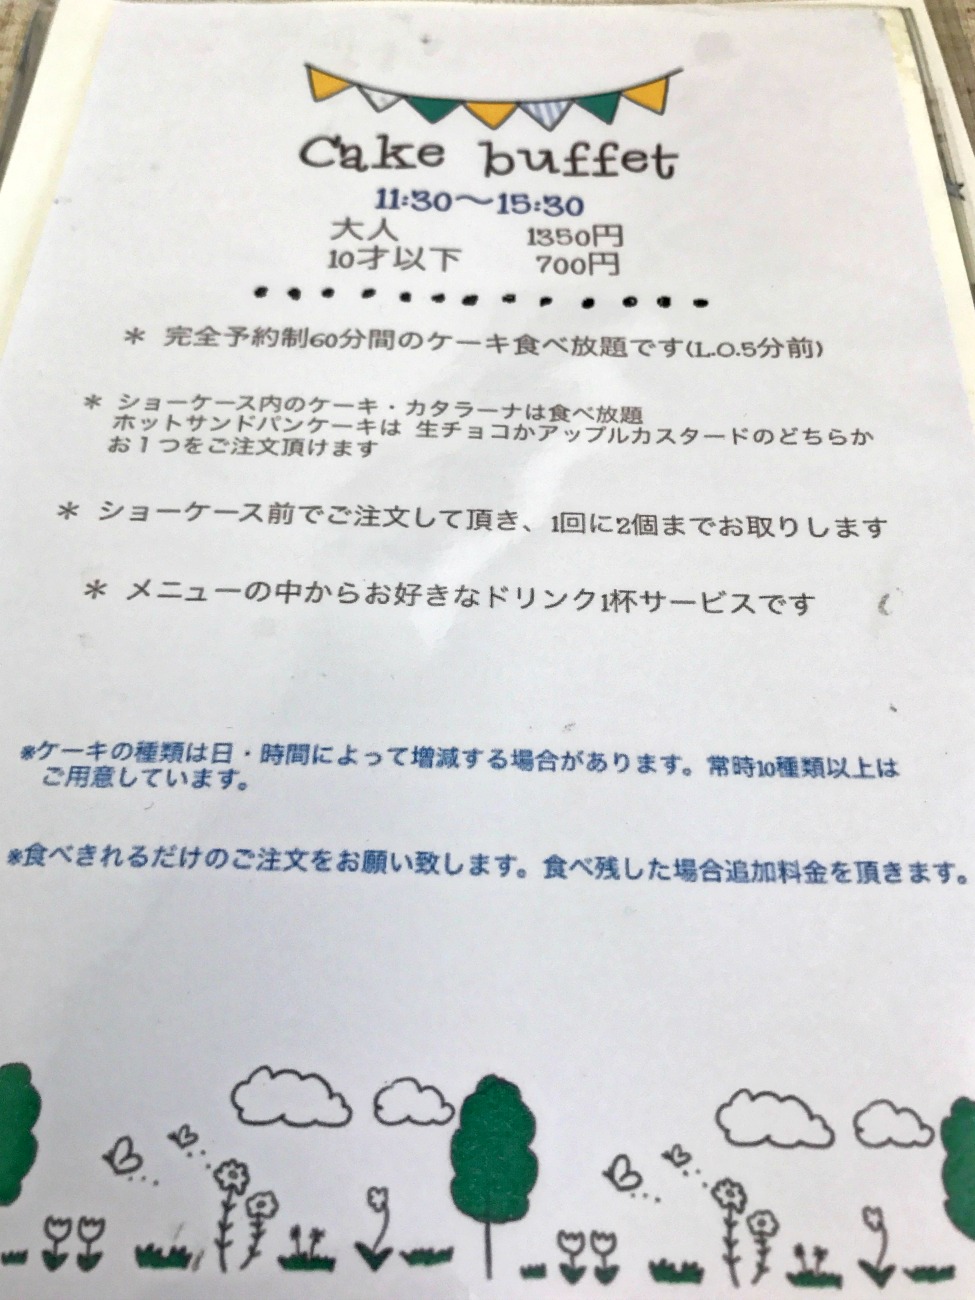 Cake buffet
11:30〜15:30
大人 1350円
10才以下 700円
＊ 完全予約制60分間のケーキ食べ放題です(L.O.5分前)
＊ ショーケース内のケーキ・カタラーナは食べ放題
ホットサンドパンケーキは 生チョコかアップルカスタードのどちらか
お１つをご注文頂けます
＊ ショーケース前でご注文して頂き、1回に2個までお取りします
＊ メニューの中からお好きなドリンク1杯サービスです
※ケーキの種類は日・時間によって増減する場合があります。常時10種類以上は
ご用意しています。
※食べきれるだけのご注文をお願い致します。食べ残した場合追加料金を頂きます。